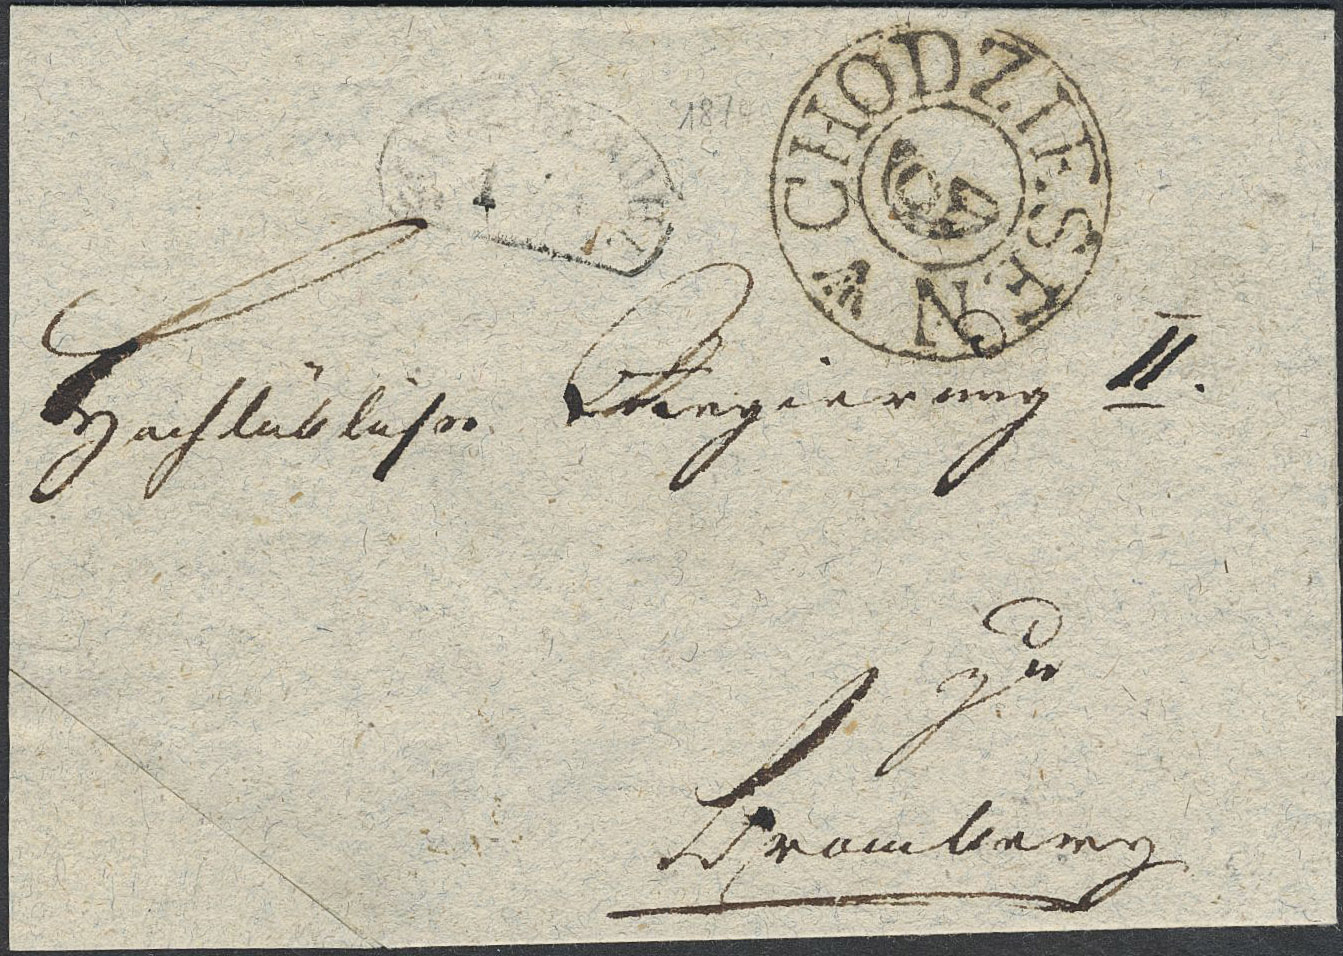 CHODZIESEN
1
Hochlöbliche Regierung II.
zu
Bromberg